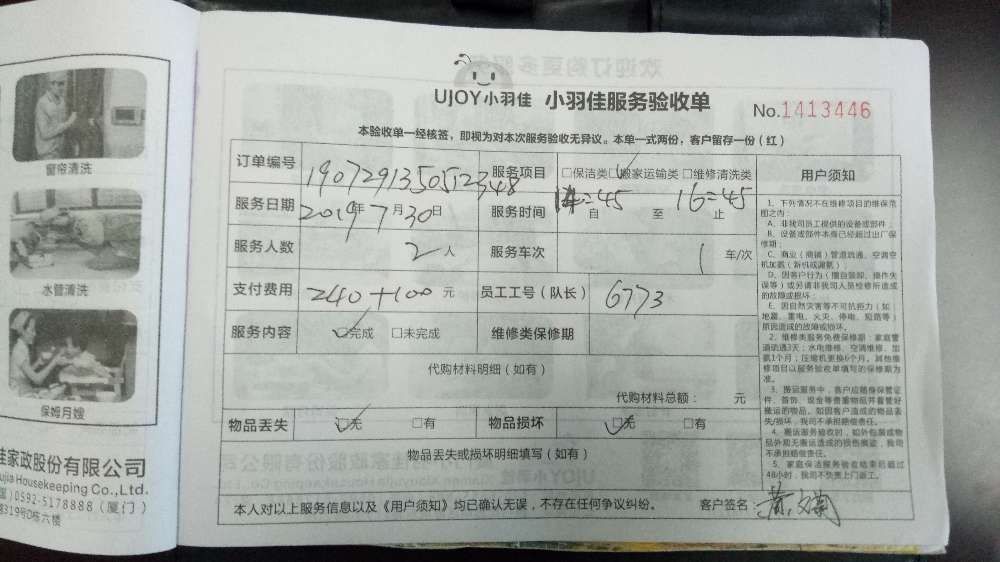 窗帘清洗
水管清洗
保姆月嫂
佳家政股份有限公司
ujia Housekeeping Co.,Ltd.
国)0592-5178888(厦门)
路319号D栋六楼
UJOY小羽佳 小羽佳服务验收单
No.1413446
本验收单一经核签,即视为对本次服务验收无异议。本单一式两份,客户留存一份(红)
订单编号 1907291350512348 服务项目 □保洁类□搬家运输类□维修清洗类
服务日期 2019年7月30日 服务时间 14:45自 至 16:45止
服务人数 2人 服务车次 1车/次
支付费用 240+100元 员工工号(队长) 6773
服务内容 □完成 □未完成 维修类保修期
代购材料明细(如有)
代购材料总额: 元
物品丢失 □无 □有 物品损坏 □无 □有
物品丢失或损坏明细填写(如有)
本人对以上服务信息以及《用户须知》均已确认无误,不存在任何争议纠纷。 客户签名:
用户须知
1、下列情况不在维修项目的维保范
围之内:
A、非我司员工提供的设备或部件;
B、设备或部件本身已经超过出厂保
修期;
C、商业(商铺)管道疏通、空调空
机加氨(新机或漏氨);
D、因客户行为(擅自装卸、操作失
误等)或另请非我司人员检修所造成
的故障或损坏;
E、因自然灾害等不可抗拒力(如
地震、雷电、火灾、停电、短路等)
原因造成的故障或损坏。
2、维修类服务免费保修期:家庭管
道疏通3天;水电维修、空调维修、加
氨1个月;压缩机更换6个月。其他维
修项目以服务验收单填写的保修期为
准。
3、搬运服务中,客户应随身保管证
件、首饰、现金等贵重物品并看管好
搬运的物品。如因客户造成的物品丢
失/损坏,我司不承担赔偿责任。
4、搬运服务验收时,如外包装或物
品外观无搬运造成的损伤痕迹,我司
不承担赔偿责任。
5、家庭保洁服务验收结束后超过
48小时,我司不负责上门返工。